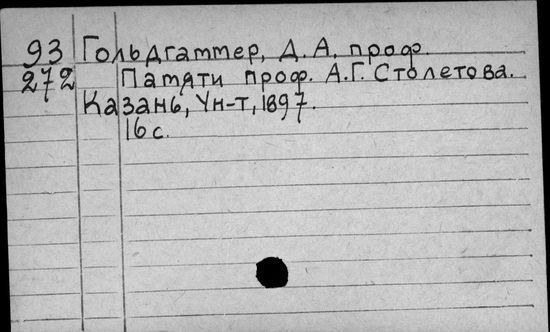 93 Гольдгаммер, Д. А, проф.
272 Памяти проф. А.Г. Столетова.
Казань, Ун-т, 1897.
16 с.